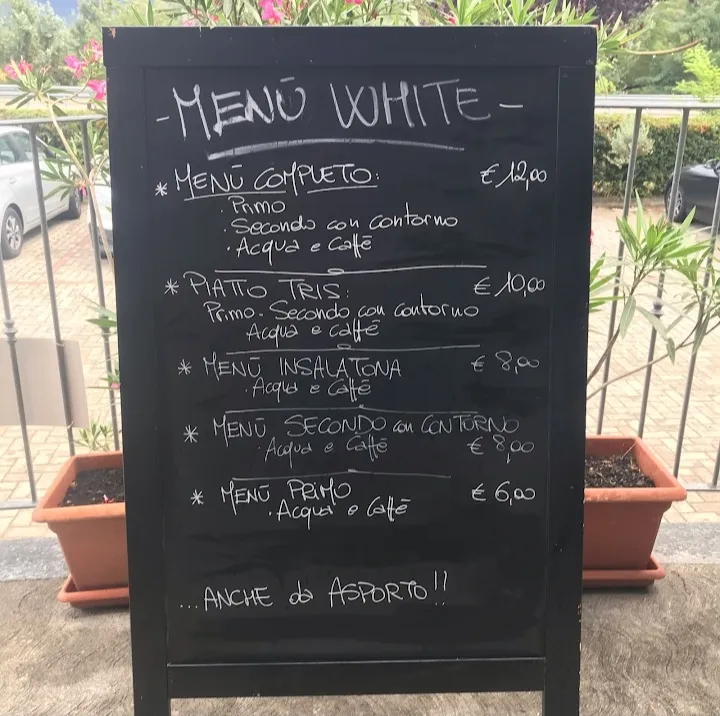 -MENŪ WHITE-
* MENŪ COMPLETO: € 12,00
· Primo
· Secondo con contorno
· Acqua e Caffē
* PIATTO TRIS: € 10,00
Primo - Secondo con contorno
Acqua e caffē
* MENŪ INSALATONA € 8,00
· Acqua e Caffē
* MENŪ SECONDO con CONTORNO
· Acqua e Caffē € 8,00
* MENŪ PRIMO € 6,00
· Acqua e Caffē
...ANCHE da ASPORTO!!